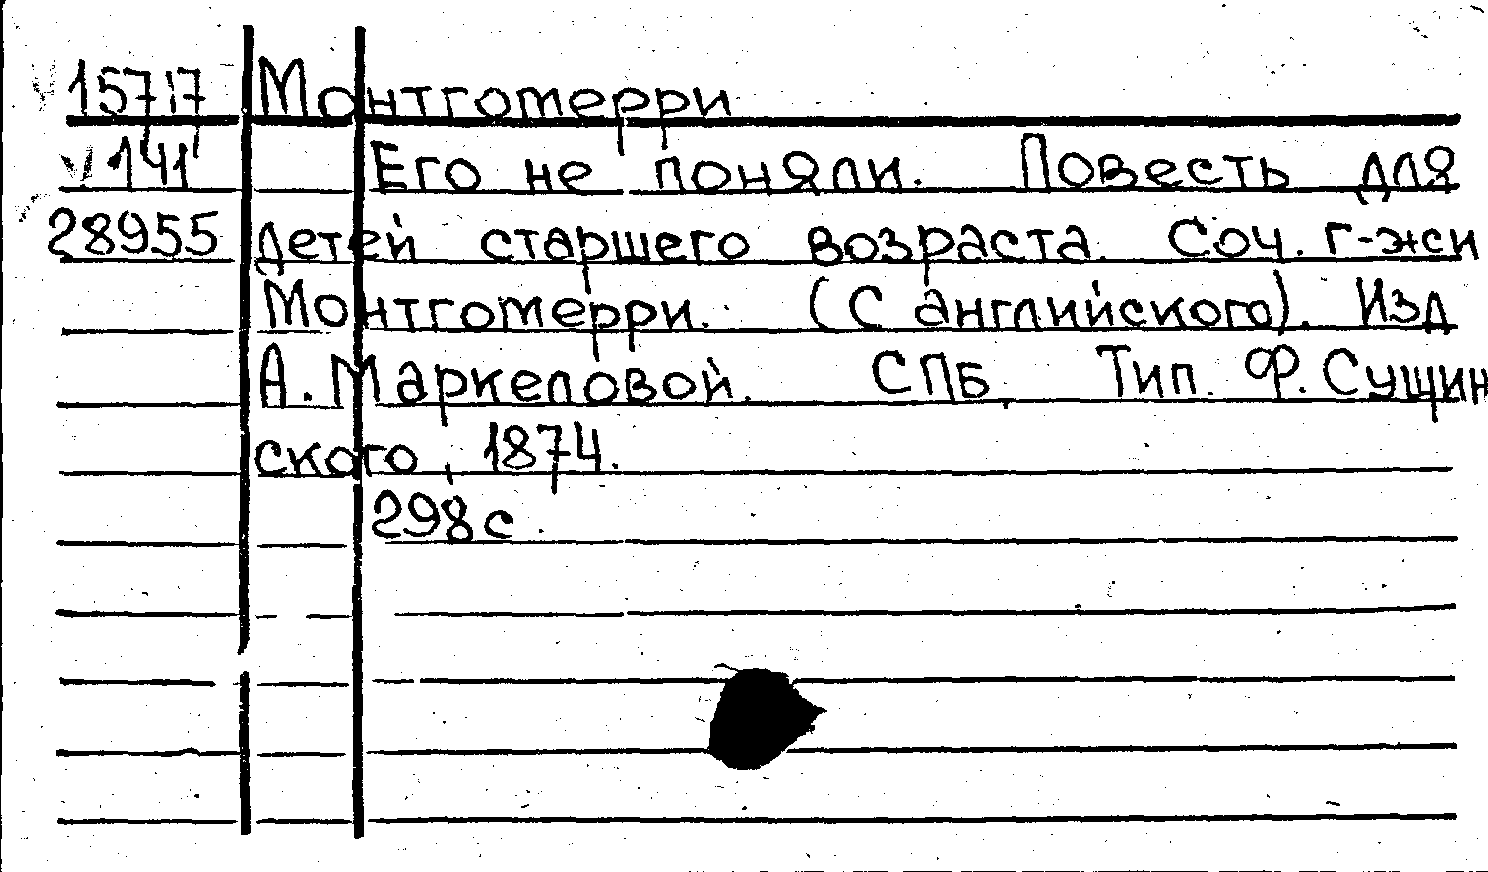 15717 Монтгомерри
141 Его не поняли. Повесть для
28955 детей старшего возраста. Соч. г-жи
Монтгомерри. (С английского). Изд
А. Маркеловой. СПБ, Тип. Ф. Сущин
ского, 1874.
298 с.